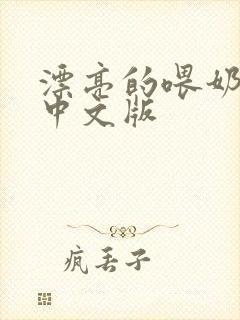 漂亮的喂奶
中文版
疯丢子